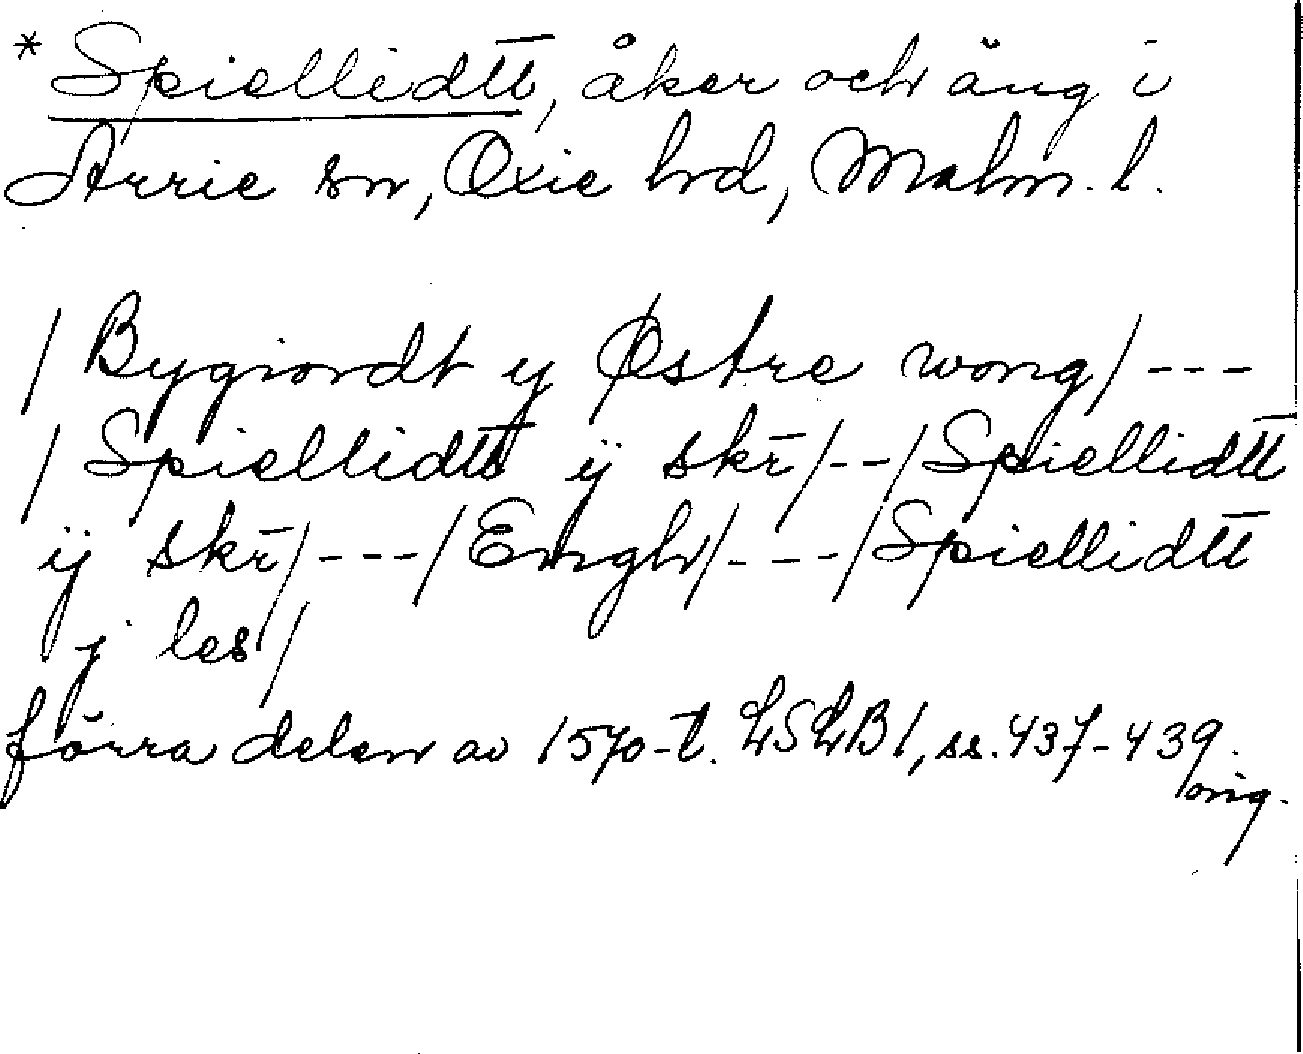 * Spiellidtt, åker och äng i
Arrie sn, Oxie hd, Malm. l.
/ Bygiordt y Østre wong/ ---
/ Spiellidtt ij skr̄/--/Spiellidtt
ij skr̄/---/Emgh/---/Spiellidtt
j les/
förra delen av 1570-t. LSLB1, ss. 437-439.
orig.